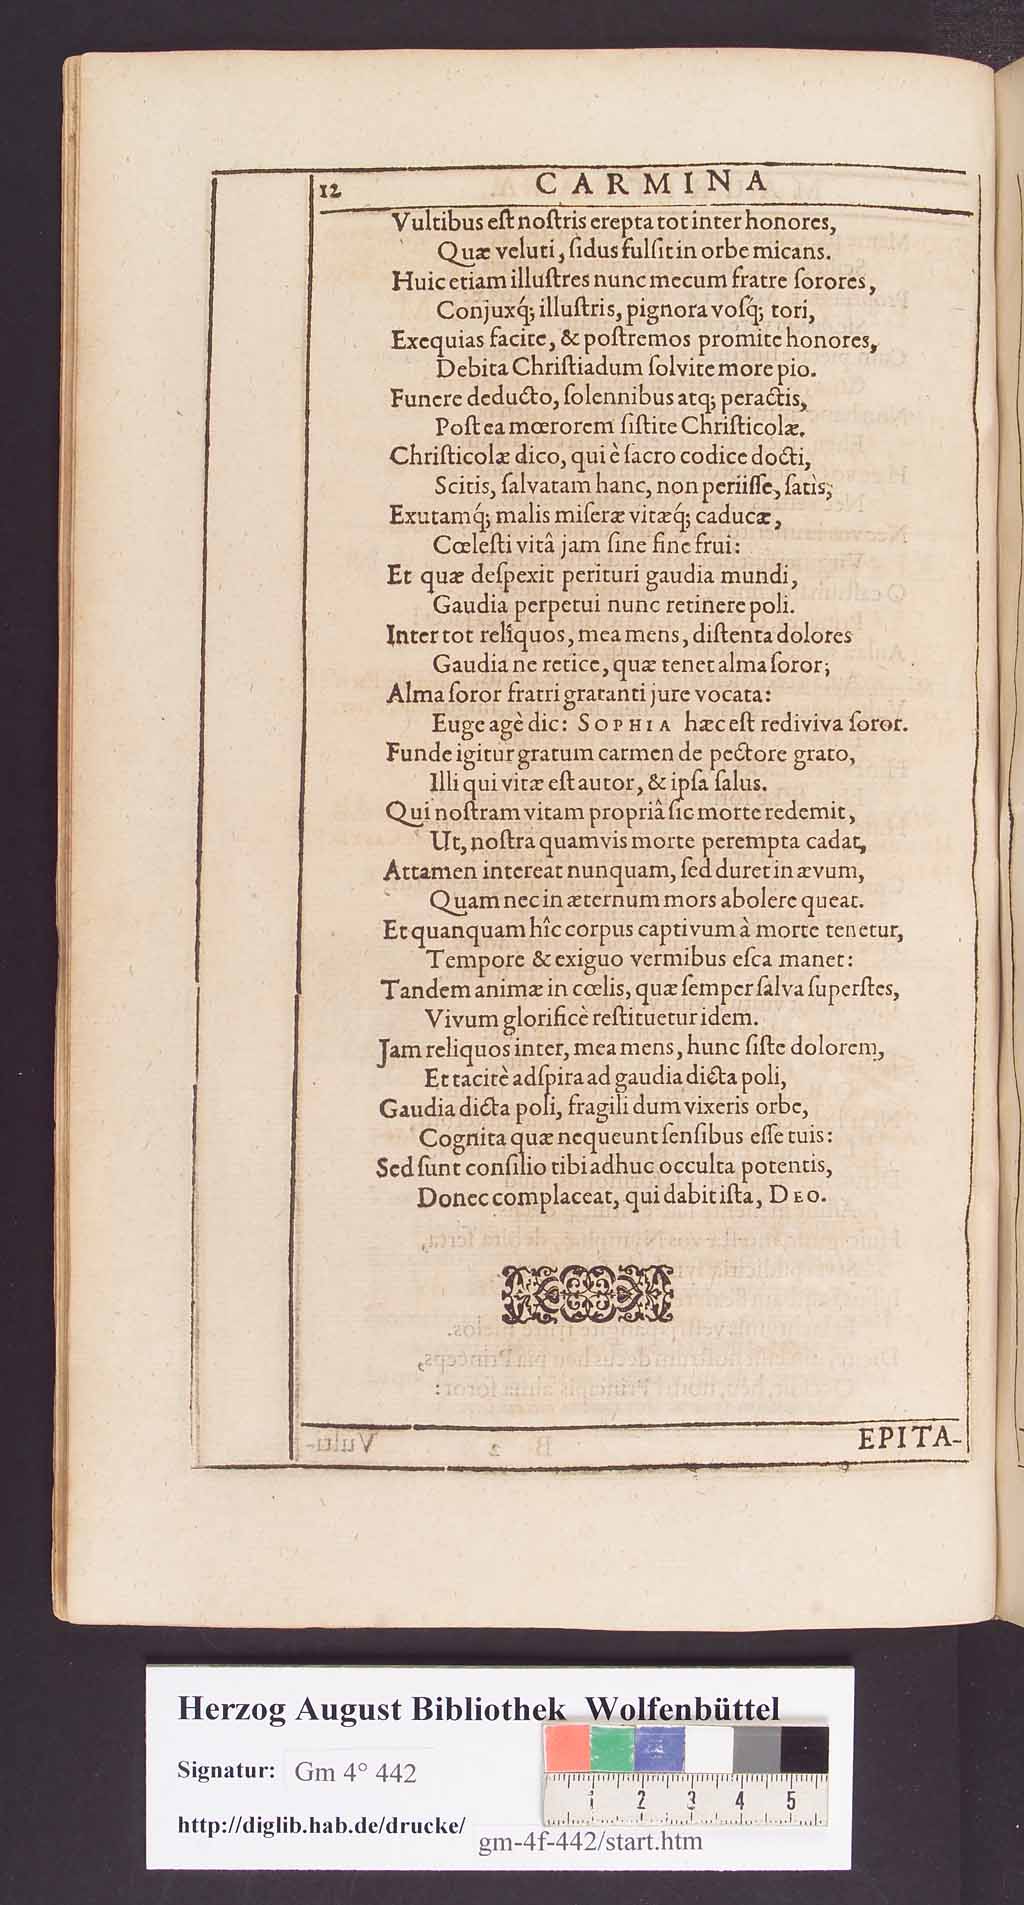 12 CARMINA
Vultibus eſt noſtris erepta tot inter honores,
Quæ veluti, ſidus fulſit in orbe micans.
Huic etiam illuſtres nunc mecum fratre ſorores,
Conjuxq́; illuſtris, pignora voſq́; tori,
Exequias facite, & poſtremos promite honores,
Debita Chriſtiadum ſolvite more pio.
Funere deducto, ſolennibus atq; peractis,
Poſt ea mœrorem ſiſtite Chriſticolæ.
Chriſticolæ dico, qui è ſacro codice docti,
Scitis, ſalvatam hanc, non periiſſe, ſatìs;
Exutamq́; malis miſeræ vitæq́; caducæ,
Cœleſti vitâ jam ſine fine frui:
Et quæ deſpexit perituri gaudia mundi,
Gaudia perpetui nunc retinere poli.
Inter tot reliquos, mea mens, diſtenta dolores
Gaudia ne retice, quæ tenet alma ſoror;
Alma ſoror fratri gratanti jure vocata:
Euge agè dic: SOPHIA hæc eſt rediviva ſoror.
Funde igitur gratum carmen de pectore grato,
Illi qui vitæ eſt autor, & ipſa ſalus.
Qui noſtram vitam propriâ ſic morte redemit,
Ut, noſtra quamvis morte perempta cadat,
Attamen intereat nunquam, ſed duret in ævum,
Quam nec in æternum mors abolere queat.
Et quanquam hîc corpus captivum à morte tenetur,
Tempore & exiguo vermibus eſca manet:
Tandem animæ in cœlis, quæ ſemper ſalva ſuperſtes,
Vivum glorificè reſtituetur idem.
Jam reliquos inter, mea mens, hunc ſiſte dolorem,
Et tacitè adſpira ad gaudia dicta poli,
Gaudia dicta poli, fragili dum vixeris orbe,
Cognita quæ nequeunt ſenſibus eſſe tuis:
Sed ſunt conſilio tibi adhuc occulta potentis,
Donec complaceat, qui dabit iſta, DEO.
EPITA-
Herzog August Bibliothek Wolfenbüttel
Signatur: Gm 4° 442
1 2 3 4 5
http://diglib.hab.de/drucke/ gm-4f-442/start.htm